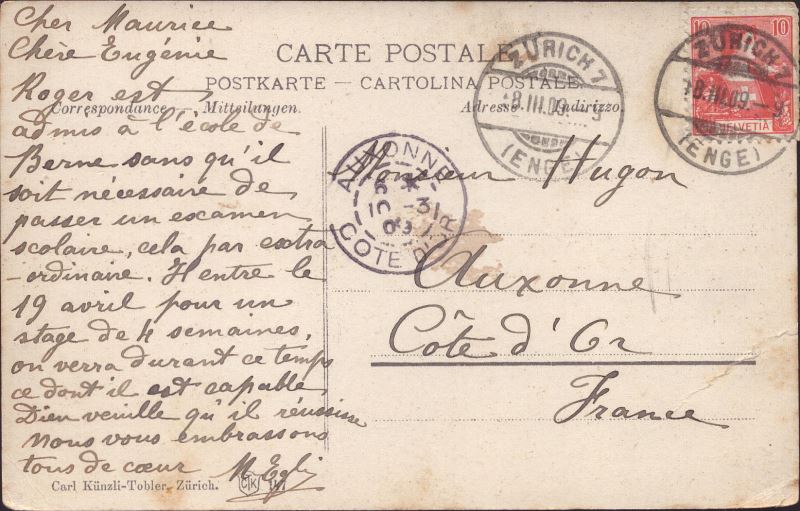 Cher Maurice
Chère Eugénie
Roger est
admis à l'école de
Berne sans qu'il
soit nécessaire de
passer un examen
scolaire, cela par extra
-ordinaire. Il entre le
19 avril pour un
stage de 4 semaines,
on verra durant ce temps
ce dont il est capable,
Dieu veuille qu'il réussisse
Nous vous embrassons
tous de cœur
M. Egli
CARTE POSTALE
POSTKARTE – CARTOLINA POSTALE
Correspondance – Mittheilungen.
Adresse – Indirizzo.
Monsieur Hugon
Auxonne
Côte d'Or
France
ZÜRICH 7
8.III.09.–9
(ENGE)
ZÜRICH 7
8.III.09.–9
(ENGE)
10 10
HELVETIA
AUXONNE
CÔTE D'OR
Carl Künzli-Tobler, Zürich.
CKT